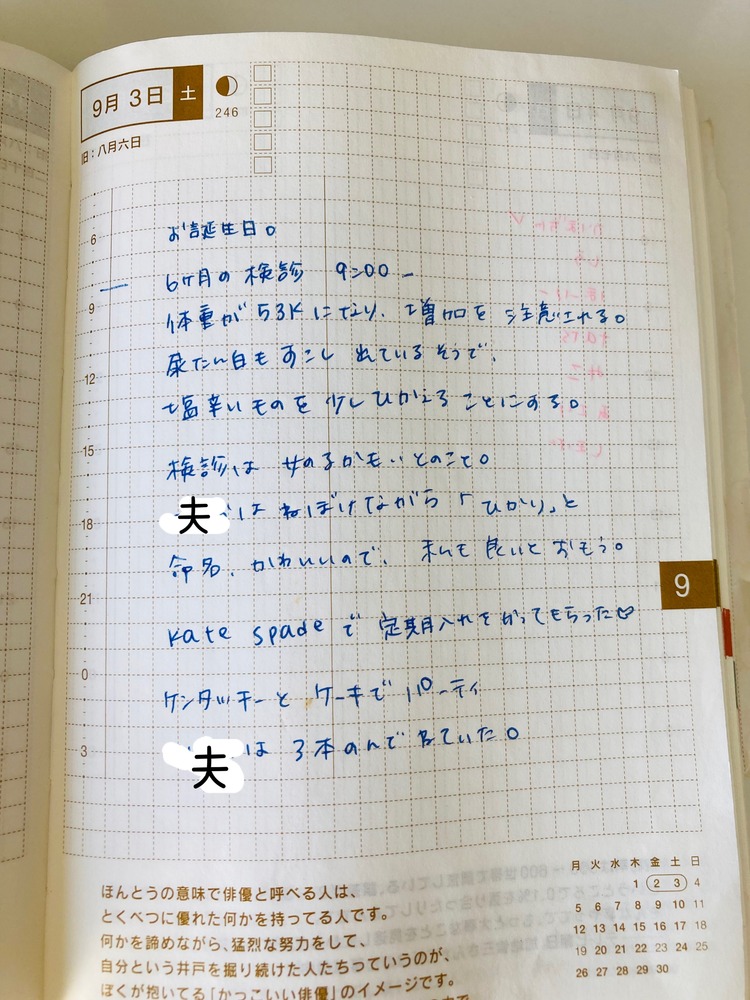 9月 3日 土
246
旧:八月六日
お誕生日。
6ヶ月の検診 9:00-
体重が53Kになり、増加を注意される。
尿たん白もすこし出ているそうで、
塩辛いものを少しひかえることにする。
検診は女の子かも…とのこと。
夫はねぼけながら「ひかり」と
命名。かわいいので、私も良いとおもう。
Kate spadeで定期入れをかってもらった♡
ケンタッキーとケーキでパーティ
夫は3本のんで寝ていた。
6
9
12
15
18
21
0
3
9
ほんとうの意味で俳優と呼べる人は、
とくべつに優れた何かを持ってる人です。
何かを諦めながら、猛烈な努力をして、
自分という井戸を掘り続けた人たちっていうのが、
ぼくが抱いてる「かっこいい俳優」のイメージです。
月 火 水 木 金 土 日
1 2 3 4
5 6 7 8 9 10 11
12 13 14 15 16 17 18
19 20 21 22 23 24 25
26 27 28 29 30